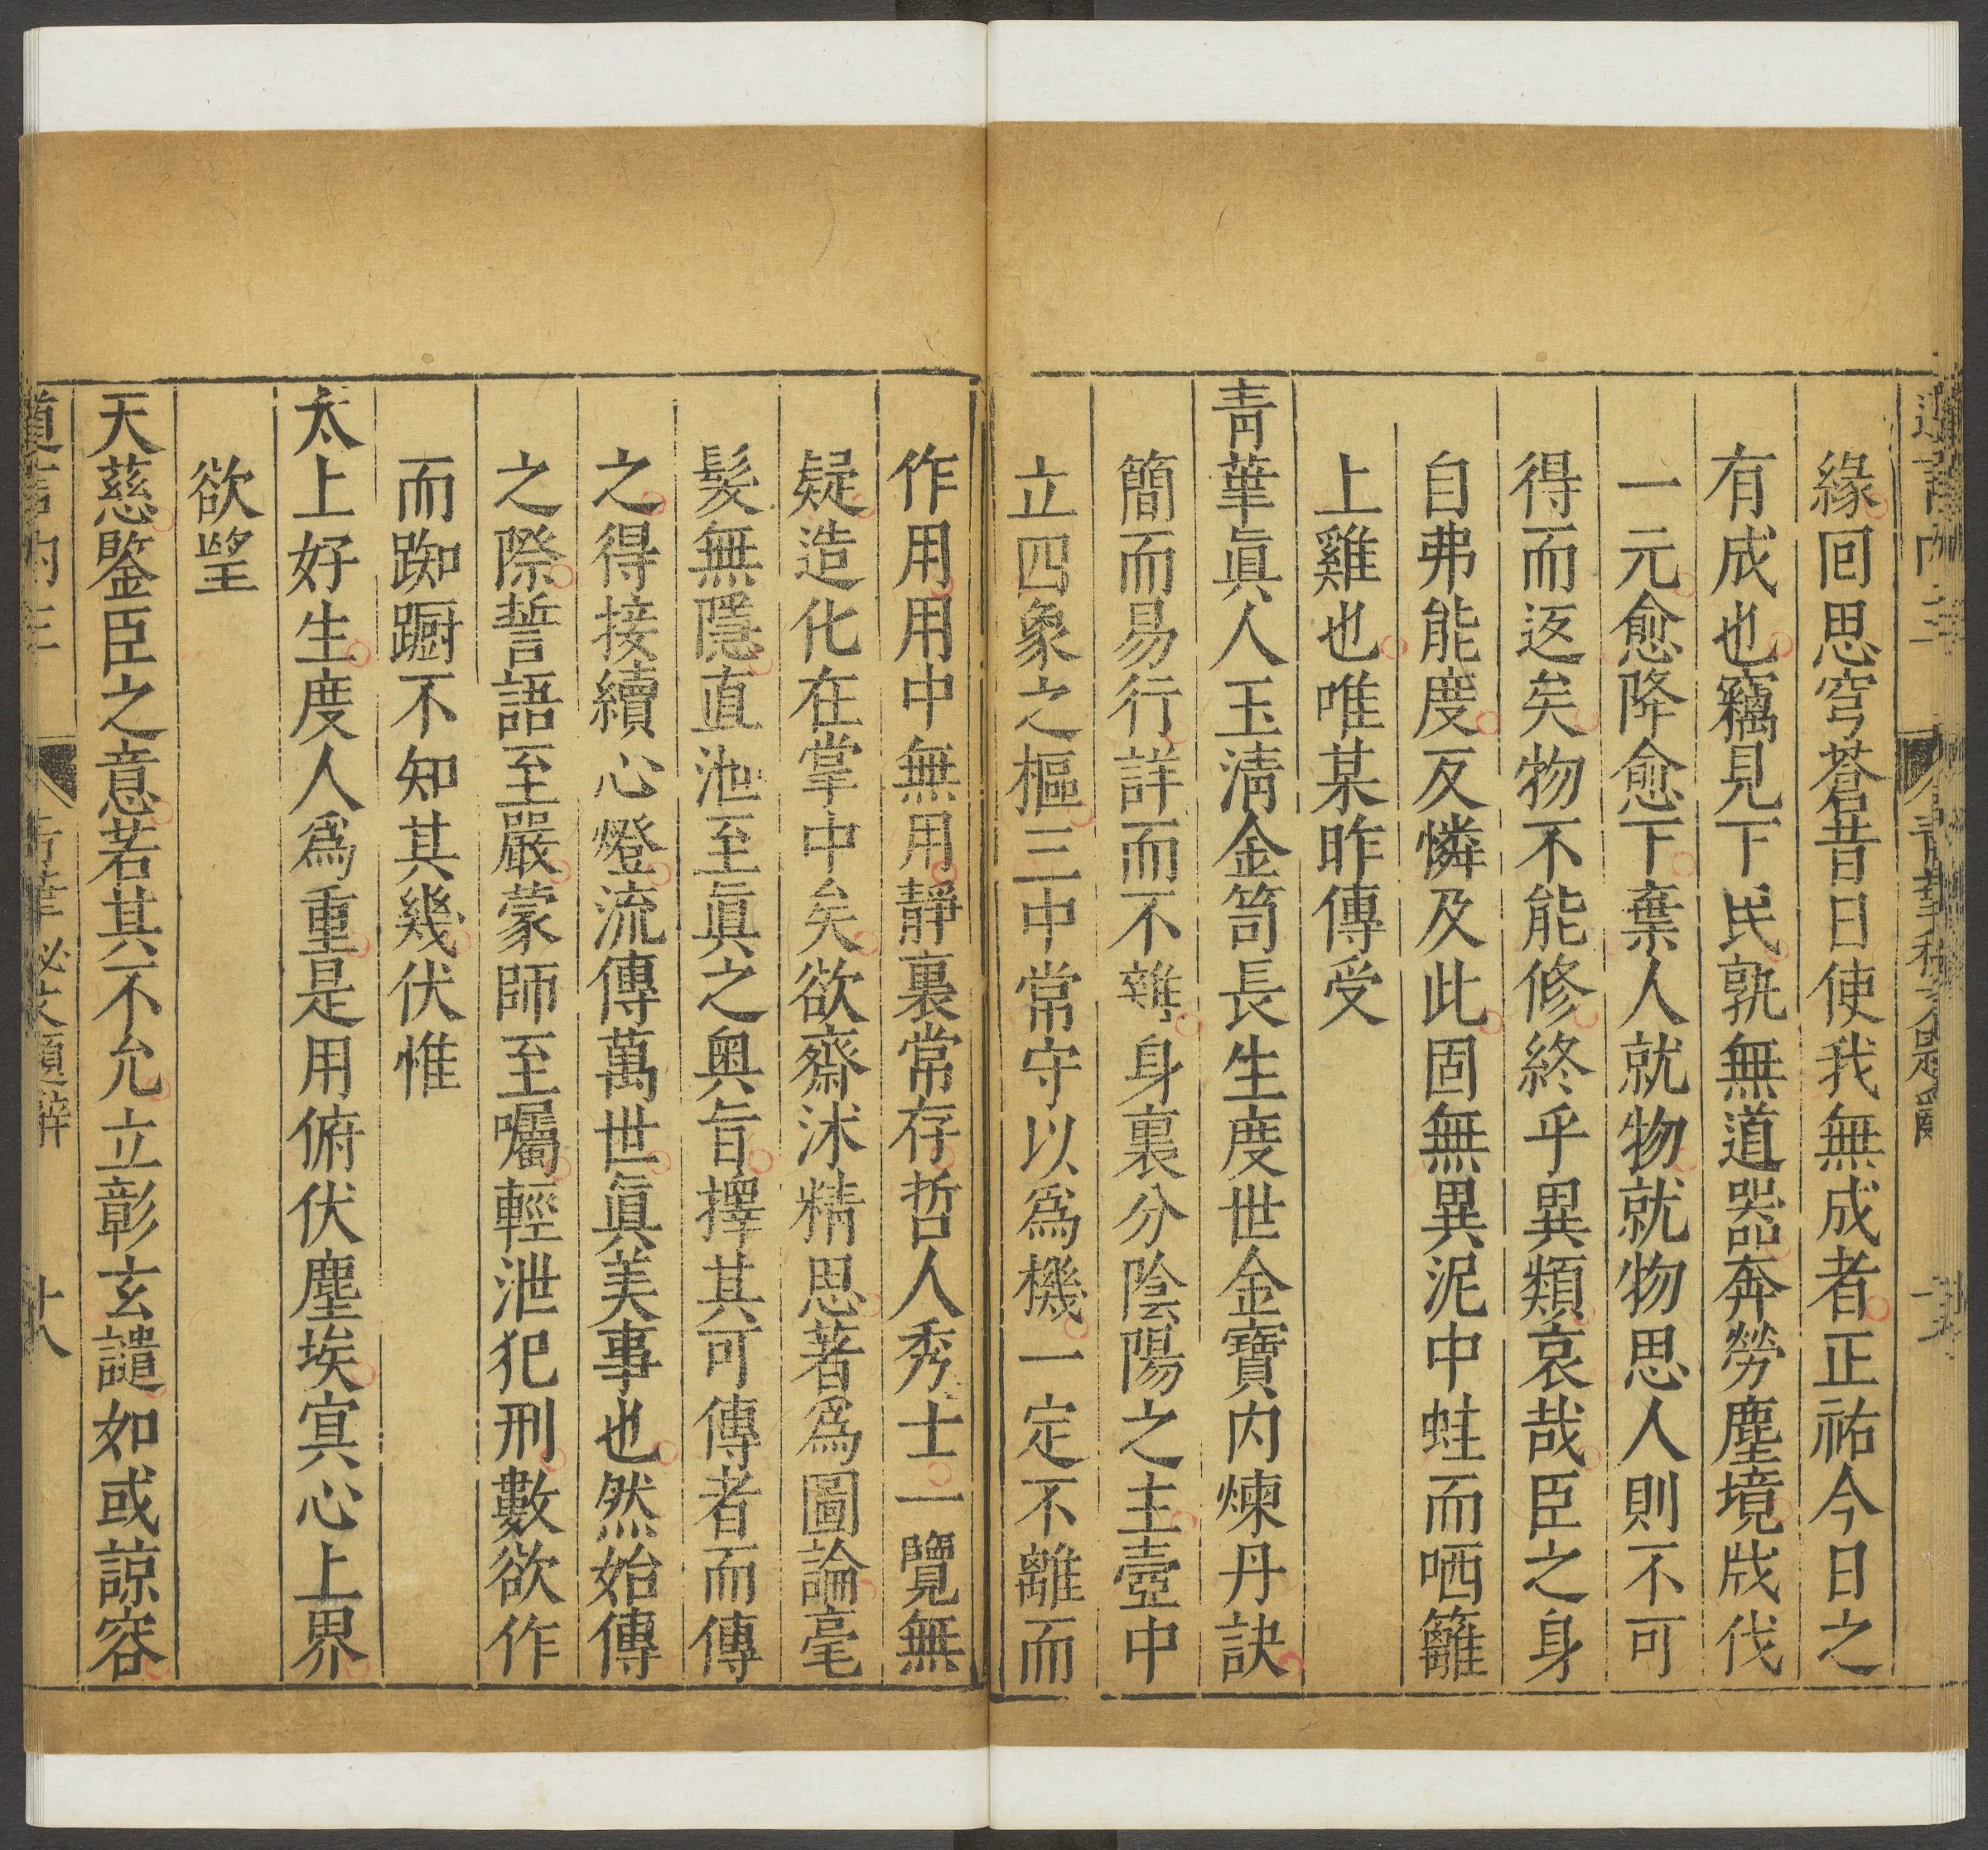 緣回思穹蒼昔日使我無成者正祐今日之
有成也竊見下民孰無道器奔勞塵境戕伐
一元愈降愈下棄人就物就物思人則不可
得而返矣物不能修終乎異類哀哉臣之身
自弗能度反憐及此固無異泥中蛙而哂籬
上雞也唯某昨傳受
青華眞人玉清金笥長生度世金寶內煉丹訣
簡而易行詳而不雜身裏分陰陽之主壺中
立四象之樞三中常守以爲機一定不離而
作用用中無用靜裏常存哲人秀士一覽無
疑造化在掌中矣欲齋沐精思著爲圖論毫
髮無隱直泄至眞之奧旨擇其可傳者而傳
之得接續心燈流傳萬世眞美事也然始傳
之際誓語至嚴蒙師至囑輕泄犯刑數欲作
而踟蹰不知其幾伏惟
太上好生度人爲重是用俯伏塵埃冥心上界
欲望
天慈鑒臣之意若其不允立彰玄譴如或諒容
道言內三 青華秘文題辭 十八